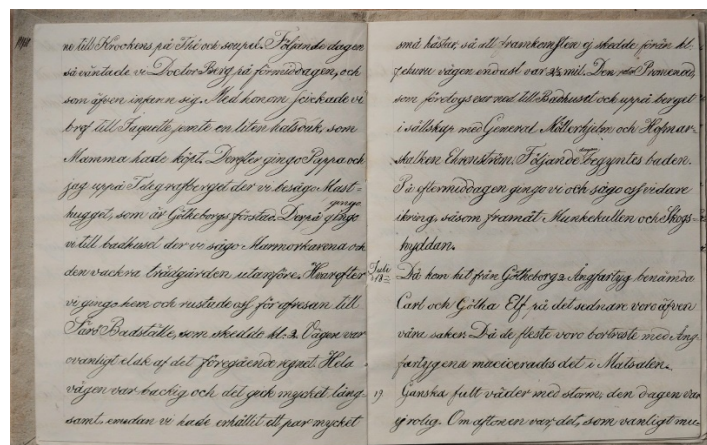 ne till Krockens på Thé och soupel. Följande dagen
så väntade vi Doctor Berg på förmiddagen, och
som äfven infann sig. Med honom skickade vi
bref till Jaquette jemte en liten halsduk som
Mamma hade köpt. Derefter gingo Pappa och
jag uppå Telegrafberget der vi besågo Mast-
hugget, som är Götheborgs förstad. Derpå gingo
vi till badhuset der vi sågo Marmorkaren och
den vackra trädgården utanföre. Hvarefter
vi gingo hem och rustade oss för afresan till
Särö Badställe, som skedde kl. 2. Vägen var
ovanligt elak af det föregående regnet. Hela
vägen var backig och det gick mycket lång-
samt, emedan vi hade erhållet ett par mycket
små hästar, så att framkomsten ej skedde förän kl.
7 ehuru vägen endast var 2½ mil. Den Promenad,
som företogs var ned till Badhuset och uppå berget
i sällskap med General Möllerhjelm och Hofmar-
skalken Ehrenström. Följande dagen begyntes baden.
På eftermiddagen gingo vi och sågo oss vidare
ikring, såsom framåt Munkekullen och Skogs-
hyddan.
Juli
18 Då kom hit från Götheborg 2 Ångfartyg benämda
Carl och Götha Elf på det sednare voro äfven
våra saker. Då de fleste voro bortreste med Ång-
fartygena musicerades det i Matsalen.
19 Ganska fult väder med storm, den dagen var
ej rolig. Om aftonen var det, som vanligt mu-